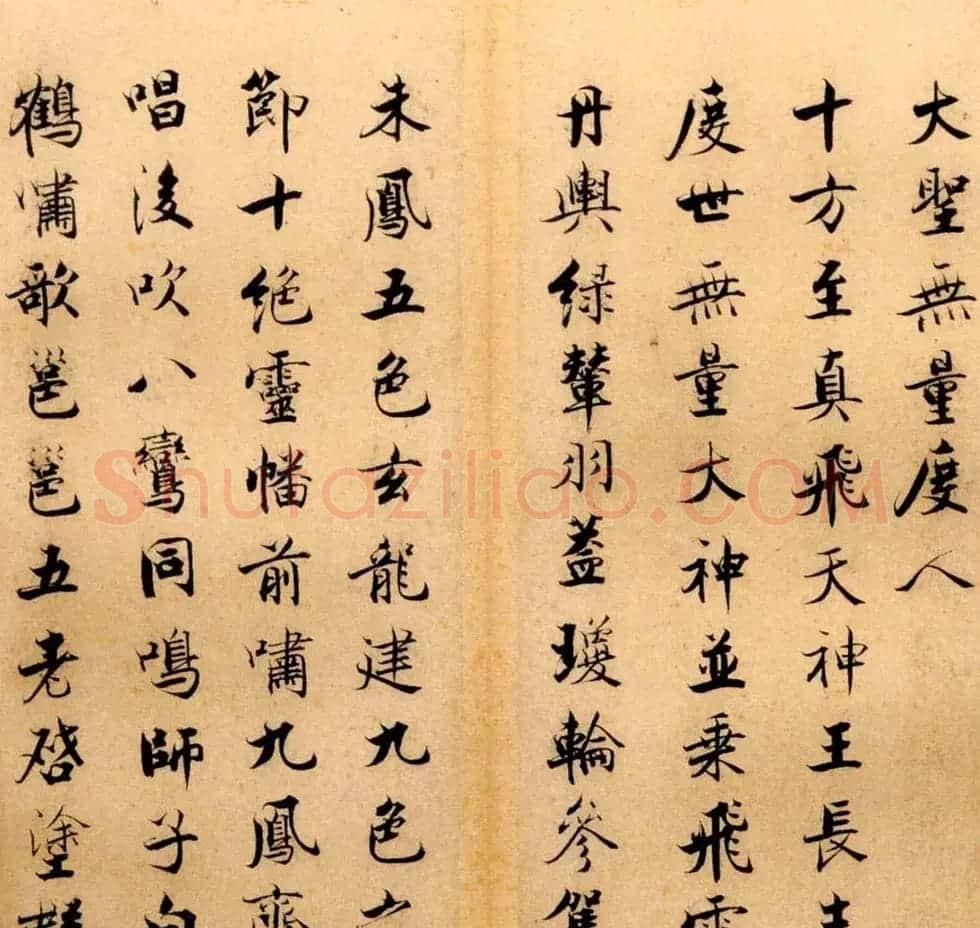 大聖無量度人
十方至真飛天神王長生
度世無量大神並乗飛雲
丹輿緑輦羽蓋瓊輪參駕
朱鳳五色玄龍建九色之
節十絶靈幡前嘯九鳳齊
唱後吹八鸞同鳴師子白
鶴嘯歌邕邕五老啓塗
Shufaziliao.COM